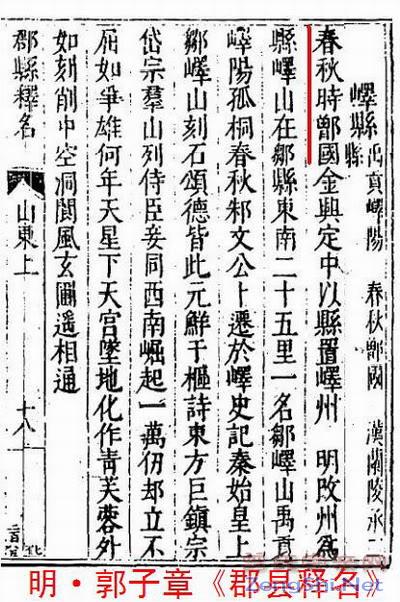 嶧縣 禹貢嶧陽 春秋鄫國 漢蘭陵承二
縣
春秋時鄫國金興定中以縣置嶧州 明改州爲
縣嶧山在鄒縣東南二十五里一名鄒嶧山禹貢
嶧陽孤桐春秋邾文公卜遷於嶧史記秦始皇上
鄒嶧山刻石頌德皆此元鮮于樞詩東方巨鎮宗
岱宗羣山列侍臣妾同西南崛起一萬仞却立不
屈如爭雄何年天星下天宮墜地化作青芙蓉外
如刻削中空洞閬風玄圃遥相通
郡縣釋名 山東上 十八
明·郭子章《郡县释名》